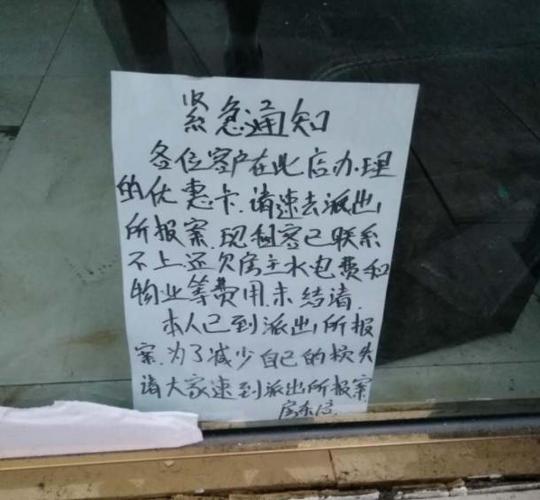 紧急通知
各位客户在此店办理
的优惠卡.请速去派出
所报案.现租客已联系
不上还欠房主水电费和
物业等费用未结清.
本人已到派出所报
案.为了减少自己的损失
请大家速到派出所报案
房东